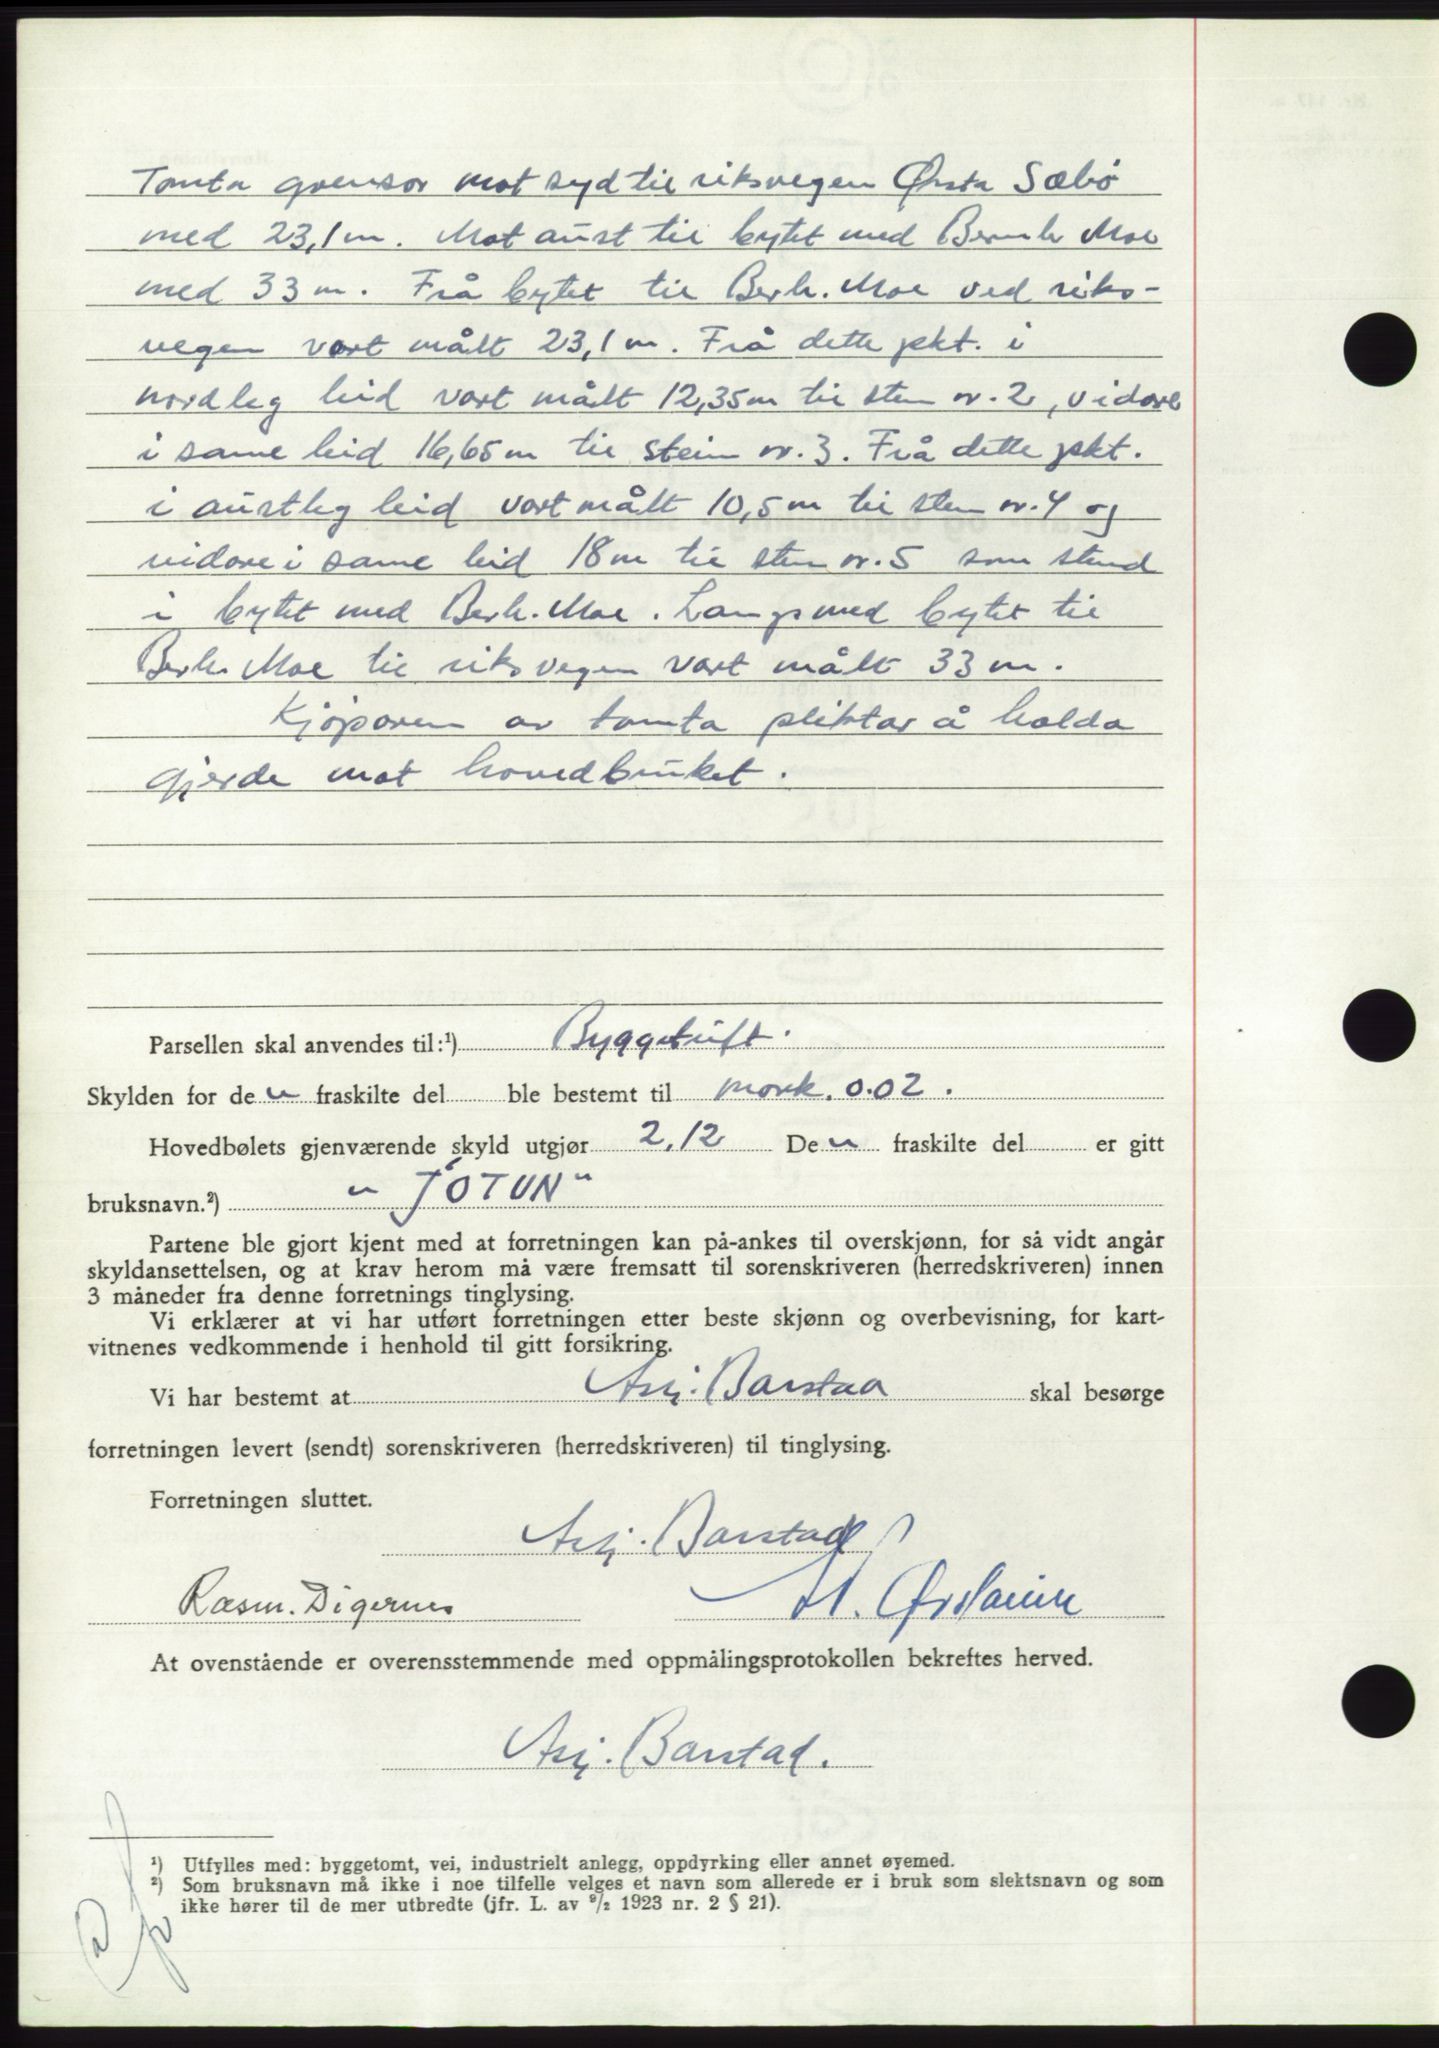 Tomta grensor mot syd til riksvegen Ørsta Sæbø
med 23,1 m. Mot aust til bytet med Bernh. Moe
med 33 m. Frå bytet til Berh. Moe ved riks-
vegen vart målt 23,1 m. Frå dette pkt. i
nordleg leid vart målt 12,35 m til sten nr. 2, vidare
i same leid 16,65 m til stein nr. 3. Frå dette pkt.
i austleg leid vart målt 10,5 m til sten nr. 4 og
vidare i same leid 18 m til sten nr. 5 som stend
i bytet med Berh. Moe. Langs med bytet til
Berh. Moe til riksvegen vart målt 33 m.
Kjøparen av tomta pliktar å halda
gjerde mot hovedbruket.
Parsellen skal anvendes til:¹) Byggetuft.
Skylden for de n fraskilte del ble bestemt til mork. 0.02.
Hovedbølets gjenværende skyld utgjør 2,12 De n fraskilte del er gitt
bruksnavn.²) "JØTUN"
Partene ble gjort kjent med at forretningen kan på-ankes til overskjønn, for så vidt angår
skyldansettelsen, og at krav herom må være fremsatt til sorenskriveren (herredskriveren) innen
3 måneder fra denne forretnings tinglysing.
Vi erklærer at vi har utført forretningen etter beste skjønn og overbevisning, for kart-
vitnenes vedkommende i henhold til gitt forsikring.
Vi har bestemt at Asj. Barstad skal besørge
forretningen levert (sendt) sorenskriveren (herredskriveren) til tinglysing.
Forretningen sluttet.
Asj. Barstad
Rasm. Digernes
At ovenstående er overensstemmende med oppmålingsprotokollen bekreftes herved.
Asj. Barstad.
¹) Utfylles med: byggetomt, vei, industrielt anlegg, oppdyrking eller annet øyemed.
²) Som bruksnavn må ikke i noe tilfelle velges et navn som allerede er i bruk som slektsnavn og som
ikke hører til de mer utbredte (jfr. L. av ⁹/₂ 1923 nr. 2 § 21).